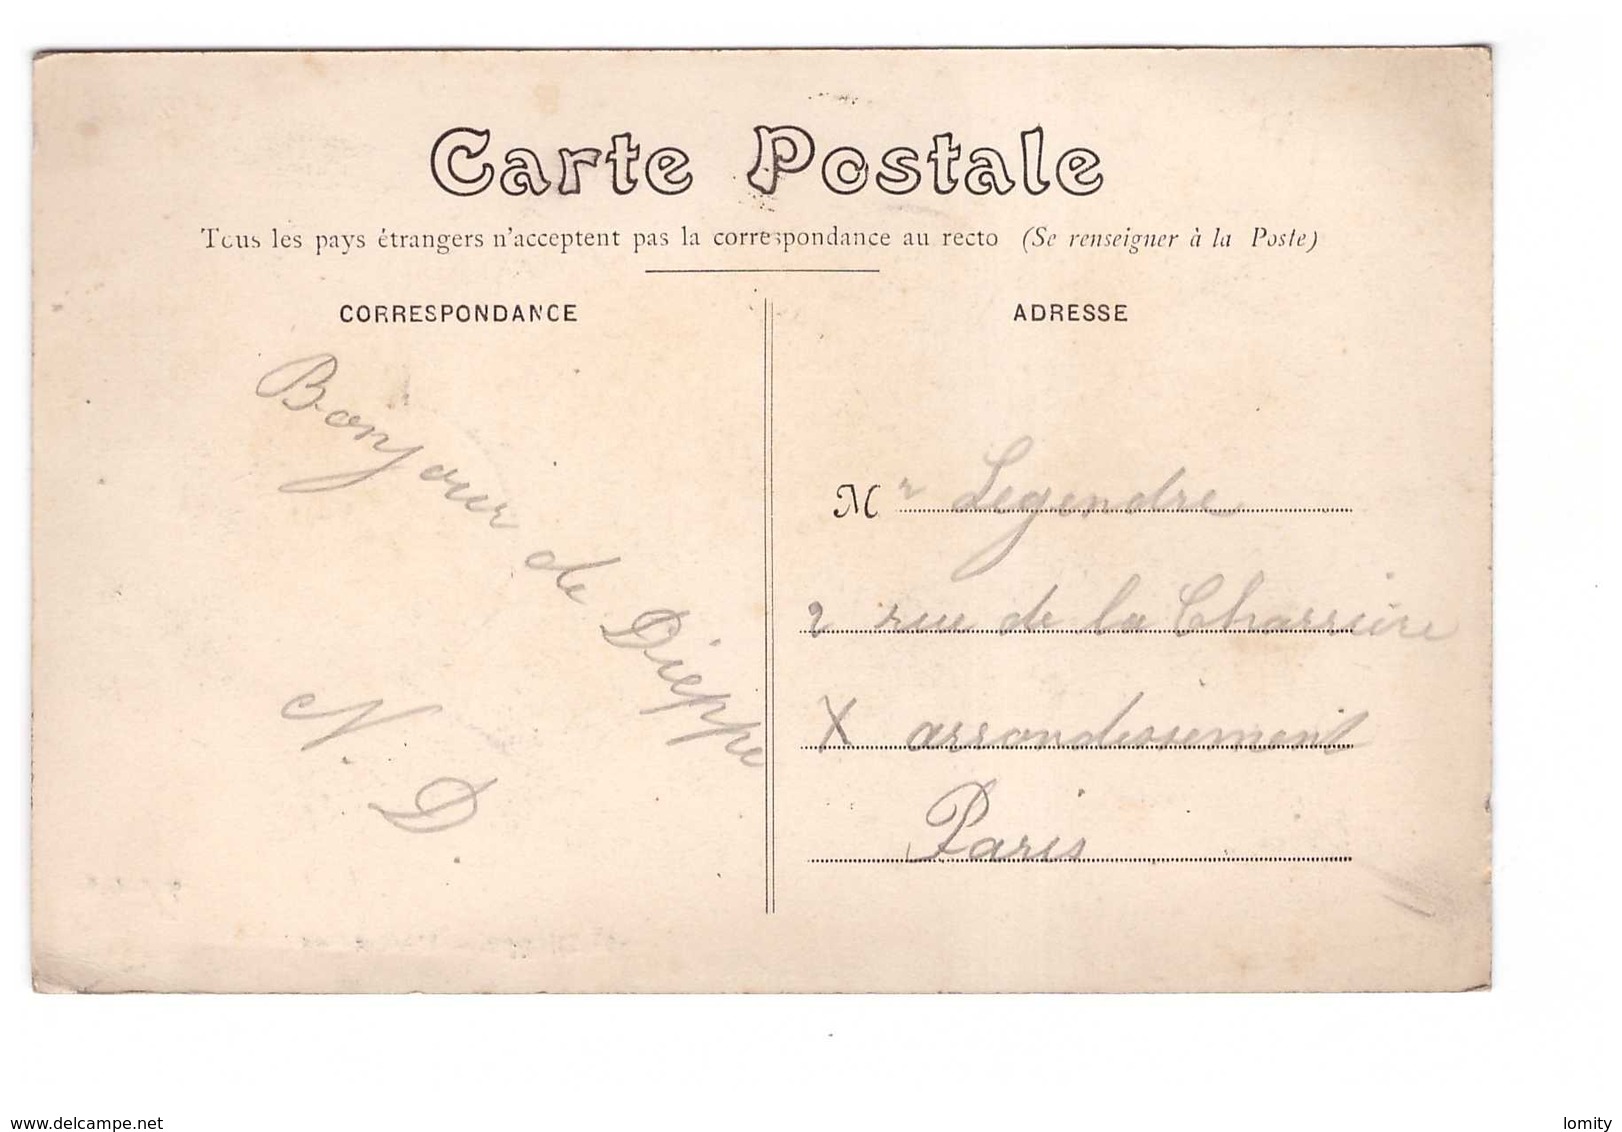 Carte Postale
Tous les pays étrangers n'acceptent pas la correspondance au recto (Se renseigner à la Poste)
CORRESPONDANCE
Bonjour de Dieppe
N. D.
ADRESSE
M r Legendre
2 rue de la Charriere
X arrondissement
Paris
www.delcampe.net
lomity